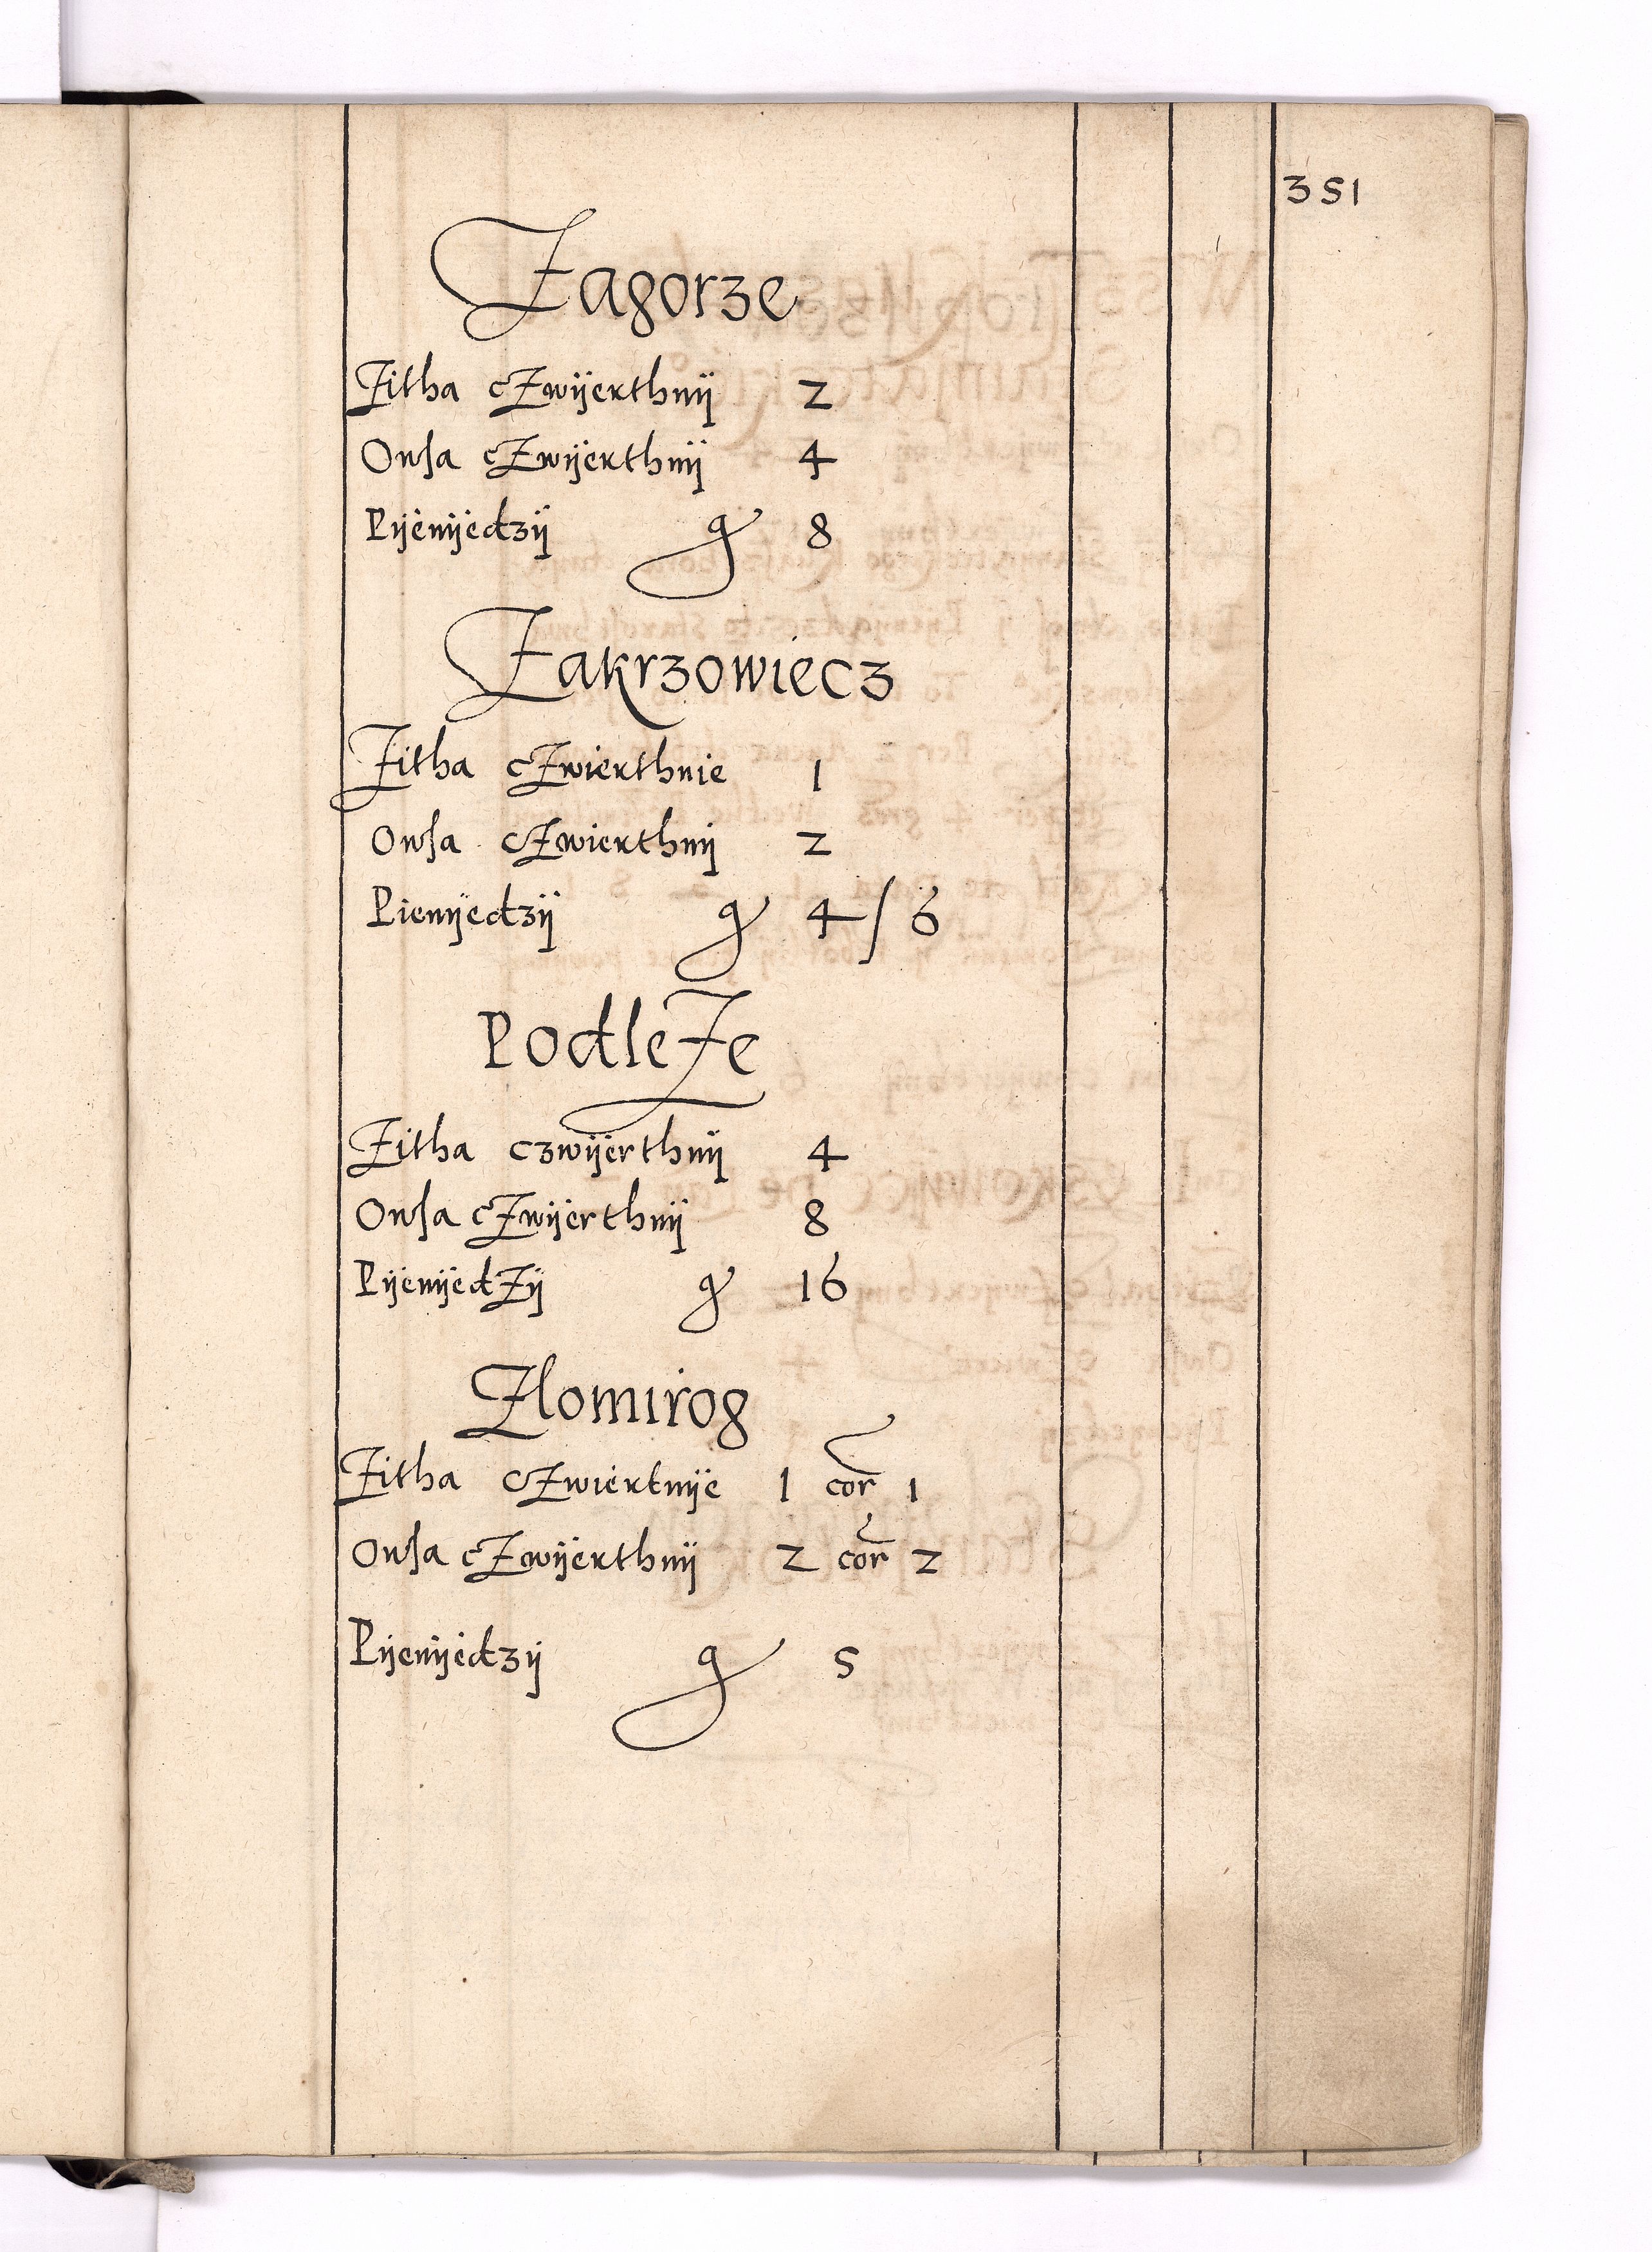 351
Zagorze
Zitha cZwÿerthnÿ 2
Owſa cZwÿerthnÿ 4
Pÿenÿedzÿ g 8
Zakrzowiecz
Zitha cZwierthnie 1
Owſa cZwierthnÿ 2
Pienÿedzÿ g 4/6
PodleZe
Zitha czwÿerthnÿ 4
Owſa cZwÿerthnÿ 8
PÿenÿedZÿ g 16
Zlomirog
Zitha cZwiertnÿe 1 cor 1
Owſa cZwÿerthnÿ 2 cor 2
Pÿenÿedzÿ g 5